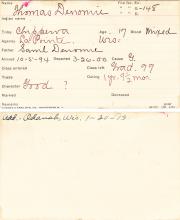 Name Thomas Denomie File No. S-148
Tribe Chippewa Age 17 Blood Mixed
Agency La Pointe Wis.
Father Saml Denomie
Arrived 10-8-94 Departed 3-26-00 Cause
Class entered Class left Grad. 99
Trade Outing 1 yr.
Character Good ?
Married Deceased
Remarks
Add. Odanah, Wis. 1-20-13